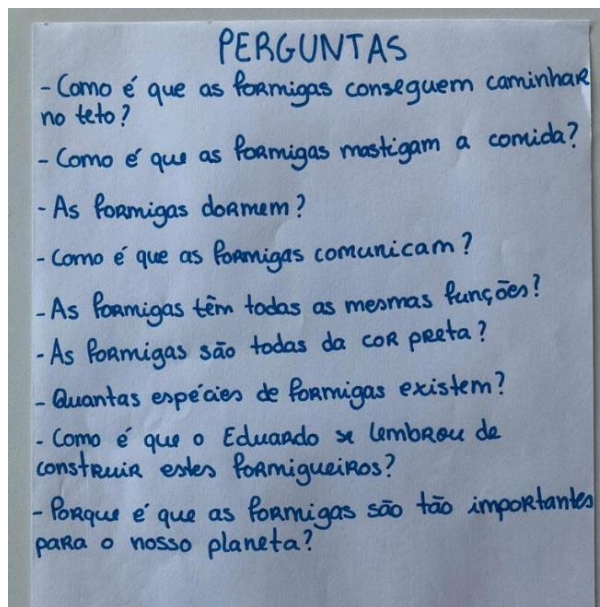 PERGUNTAS
- Como é que as formigas conseguem caminhar
no teto?
- Como é que as formigas mastigam a comida?
- As formigas dormem?
- Como é que as formigas comunicam?
- As formigas têm todas as mesmas funções?
- As formigas são todas da cor preta?
- Quantas espécies de formigas existem?
- Como é que o Eduardo se lembrou de
construir estes formigueiros?
- Porque é que as formigas são tão importantes
para o nosso planeta?